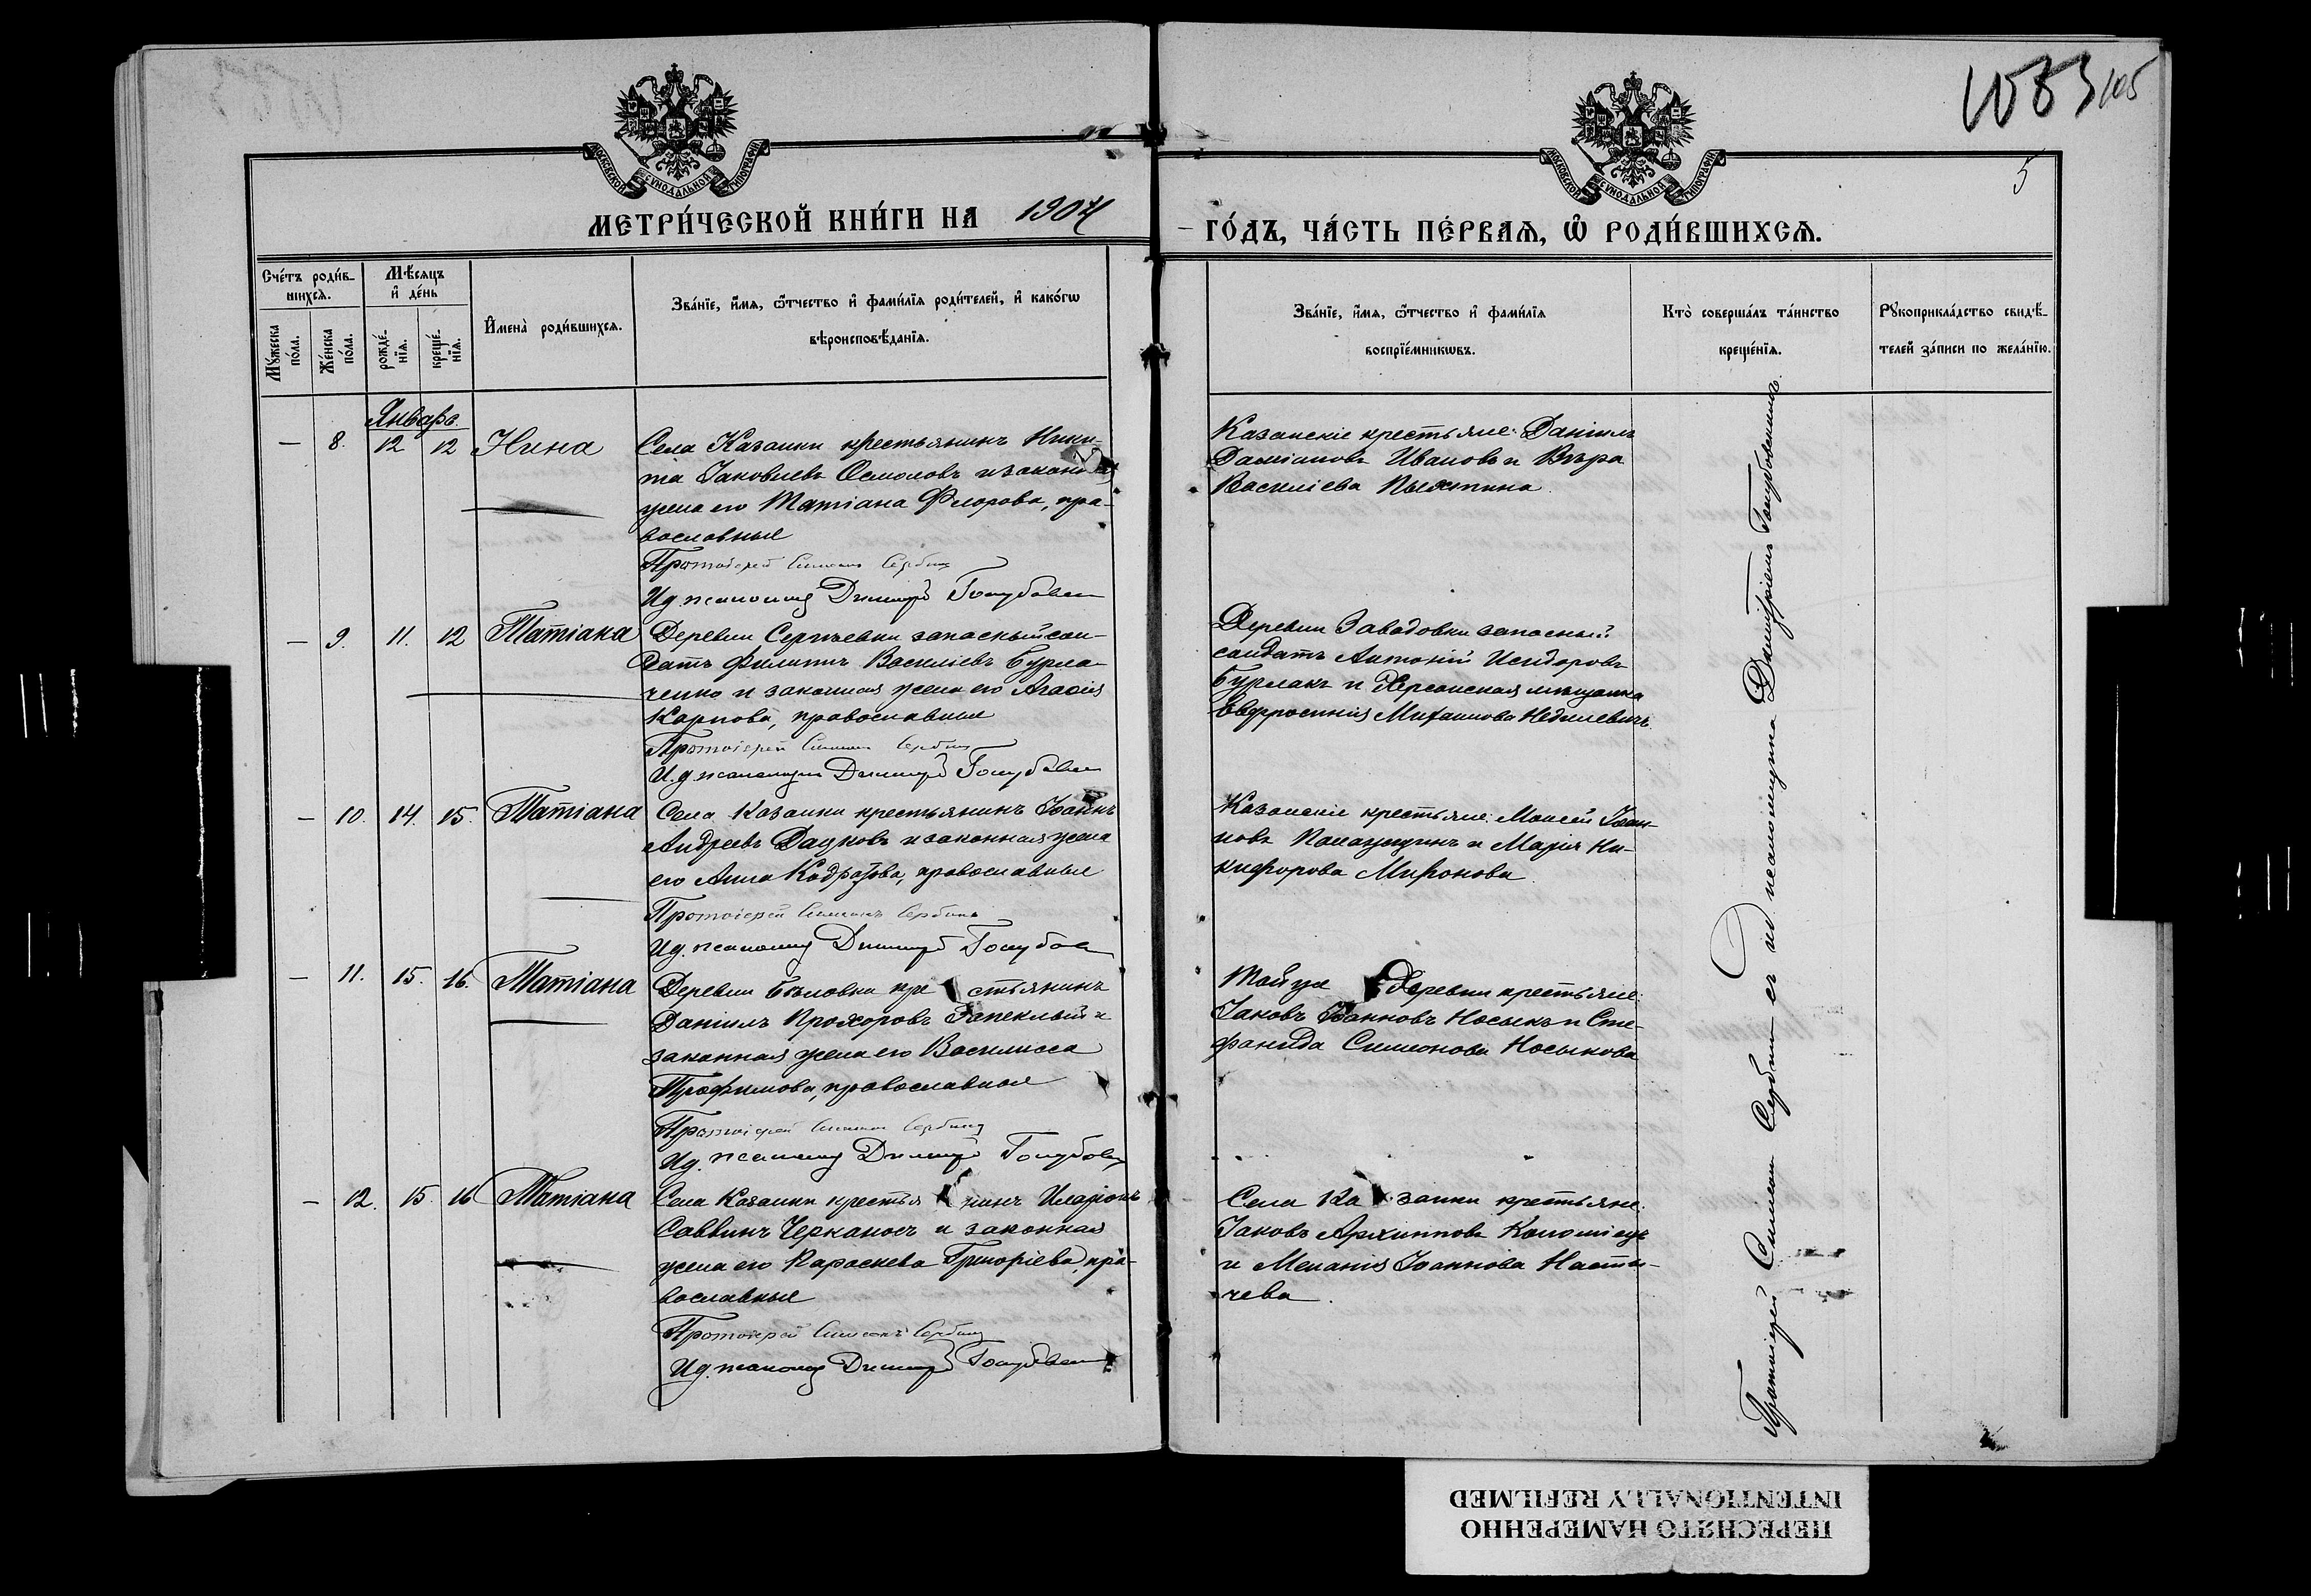 1053 105
5
МОСКОВСКОЙ СѴНОДАЛЬНОЙ ТИПОГРАФІИ
МОСКОВСКОЙ СѴНОДАЛЬНОЙ ТИПОГРАФІИ
МЕТРИ́ЧЕСКОЙ КНИ́ГИ НА 1904
ГО́ДЪ, ЧА́СТЬ ПЕ́РВАѦ, Ѡ҆ РОДИ́ВШИХСѦ.
Сче́тъ роди́в-
шихсѧ.
Мѣ́сѧцъ
и҆ де́нь
Мꙋ́жеска
по́ла.
Же́нска
по́ла.
рожде́-
нїѧ.
креще́-
нїѧ.
И҆мена̀ роди́вшихсѧ.
Зва́нїе, и҆́мѧ, ѻ҆́тчество и҆ фами́лїѧ роди́телей, и҆ како́гѡ
вѣроисповѣ́данїѧ.
Зва́нїе, и҆́мѧ, ѻ҆́тчество и҆ фами́лїѧ
воспрїе́мникѡвъ.
Кто̀ соверша́лъ та́инство
креще́нїѧ.
Рꙋкоприкла́дство свидѣ́-
телей за́писи по жела́нїю.
Январь
— 8. 12 12 Нина
Села Казанки крестьянинъ Ники-
та Іаковлевъ Осмоловъ и законная
жена его Татіана Флорова, пра-
вославные
Протоіерей Симеонъ Сербинъ
И.д. псаломщ Димитрій Голубовск
Казанскіе крестьяне: Даніилъ
Даміановъ Ивановъ и Вѣра
Василіева
— 9. 11. 12 Татіана
Деревни Сергѣевки запасный сол-
датъ Филиппъ Василіевъ Бурла-
ченко и законная жена его Агаѳія
Карпова, православные
Протоіерей Симеонъ Сербинъ
И.д. псаломщи Димитрій Голубовск
Деревни Завадовки запасный
солдатъ Антоній Исидоровъ
Бурлакъ и Херсонская мѣщанка
Евфросинія Михаилова
— 10. 14. 15. Татіана
Села Казанки крестьянинъ Іоаннъ
Андреевъ Дацковъ и законная жена
его Анна Кодратова, православные
Протоіерей Симеонъ Сербинъ
И.д. псаломщ Димитрій Голубов
Казанскіе крестьяне: Моисей Іоан-
новъ и Марія Ни-
кифорова Миронова
— 11. 15. 16. Татіана
Деревни Бѣловки кре стьянинъ
Даніилъ Прохоровъ Запеклый и
законная жена его Василисса
Трофимова, православные
Протоіерей Симеонъ Сербинъ
И.д. псаломщ Димитрій Голубовск
Той же деревни крестьяне:
Іаковъ Іоанновъ Носыкъ и Сте-
фанида Симеонова Носыкова
— 12. 15. 16 Татіана
Села Казанки крестья нинъ Иларіонъ
Саввинъ Черканосъ и законная
жена его Параскева Григоріева, пра-
вославные
Протоіерей Симеонъ Сербинъ
И.д. псаломщ Димитрій Голубовск
Села Ка занки крестьяне:
Іаковъ Архипповъ Коломіецъ
и Меланія Іоаннова Насты-
чева.
Протоіерей Симеон Сербин съ ид. псаломщика Димитріемъ Голубовскимъ.
ПЕРЕСНЯТО НАМЕРЕННО
INTENTIONALLY REFILMED